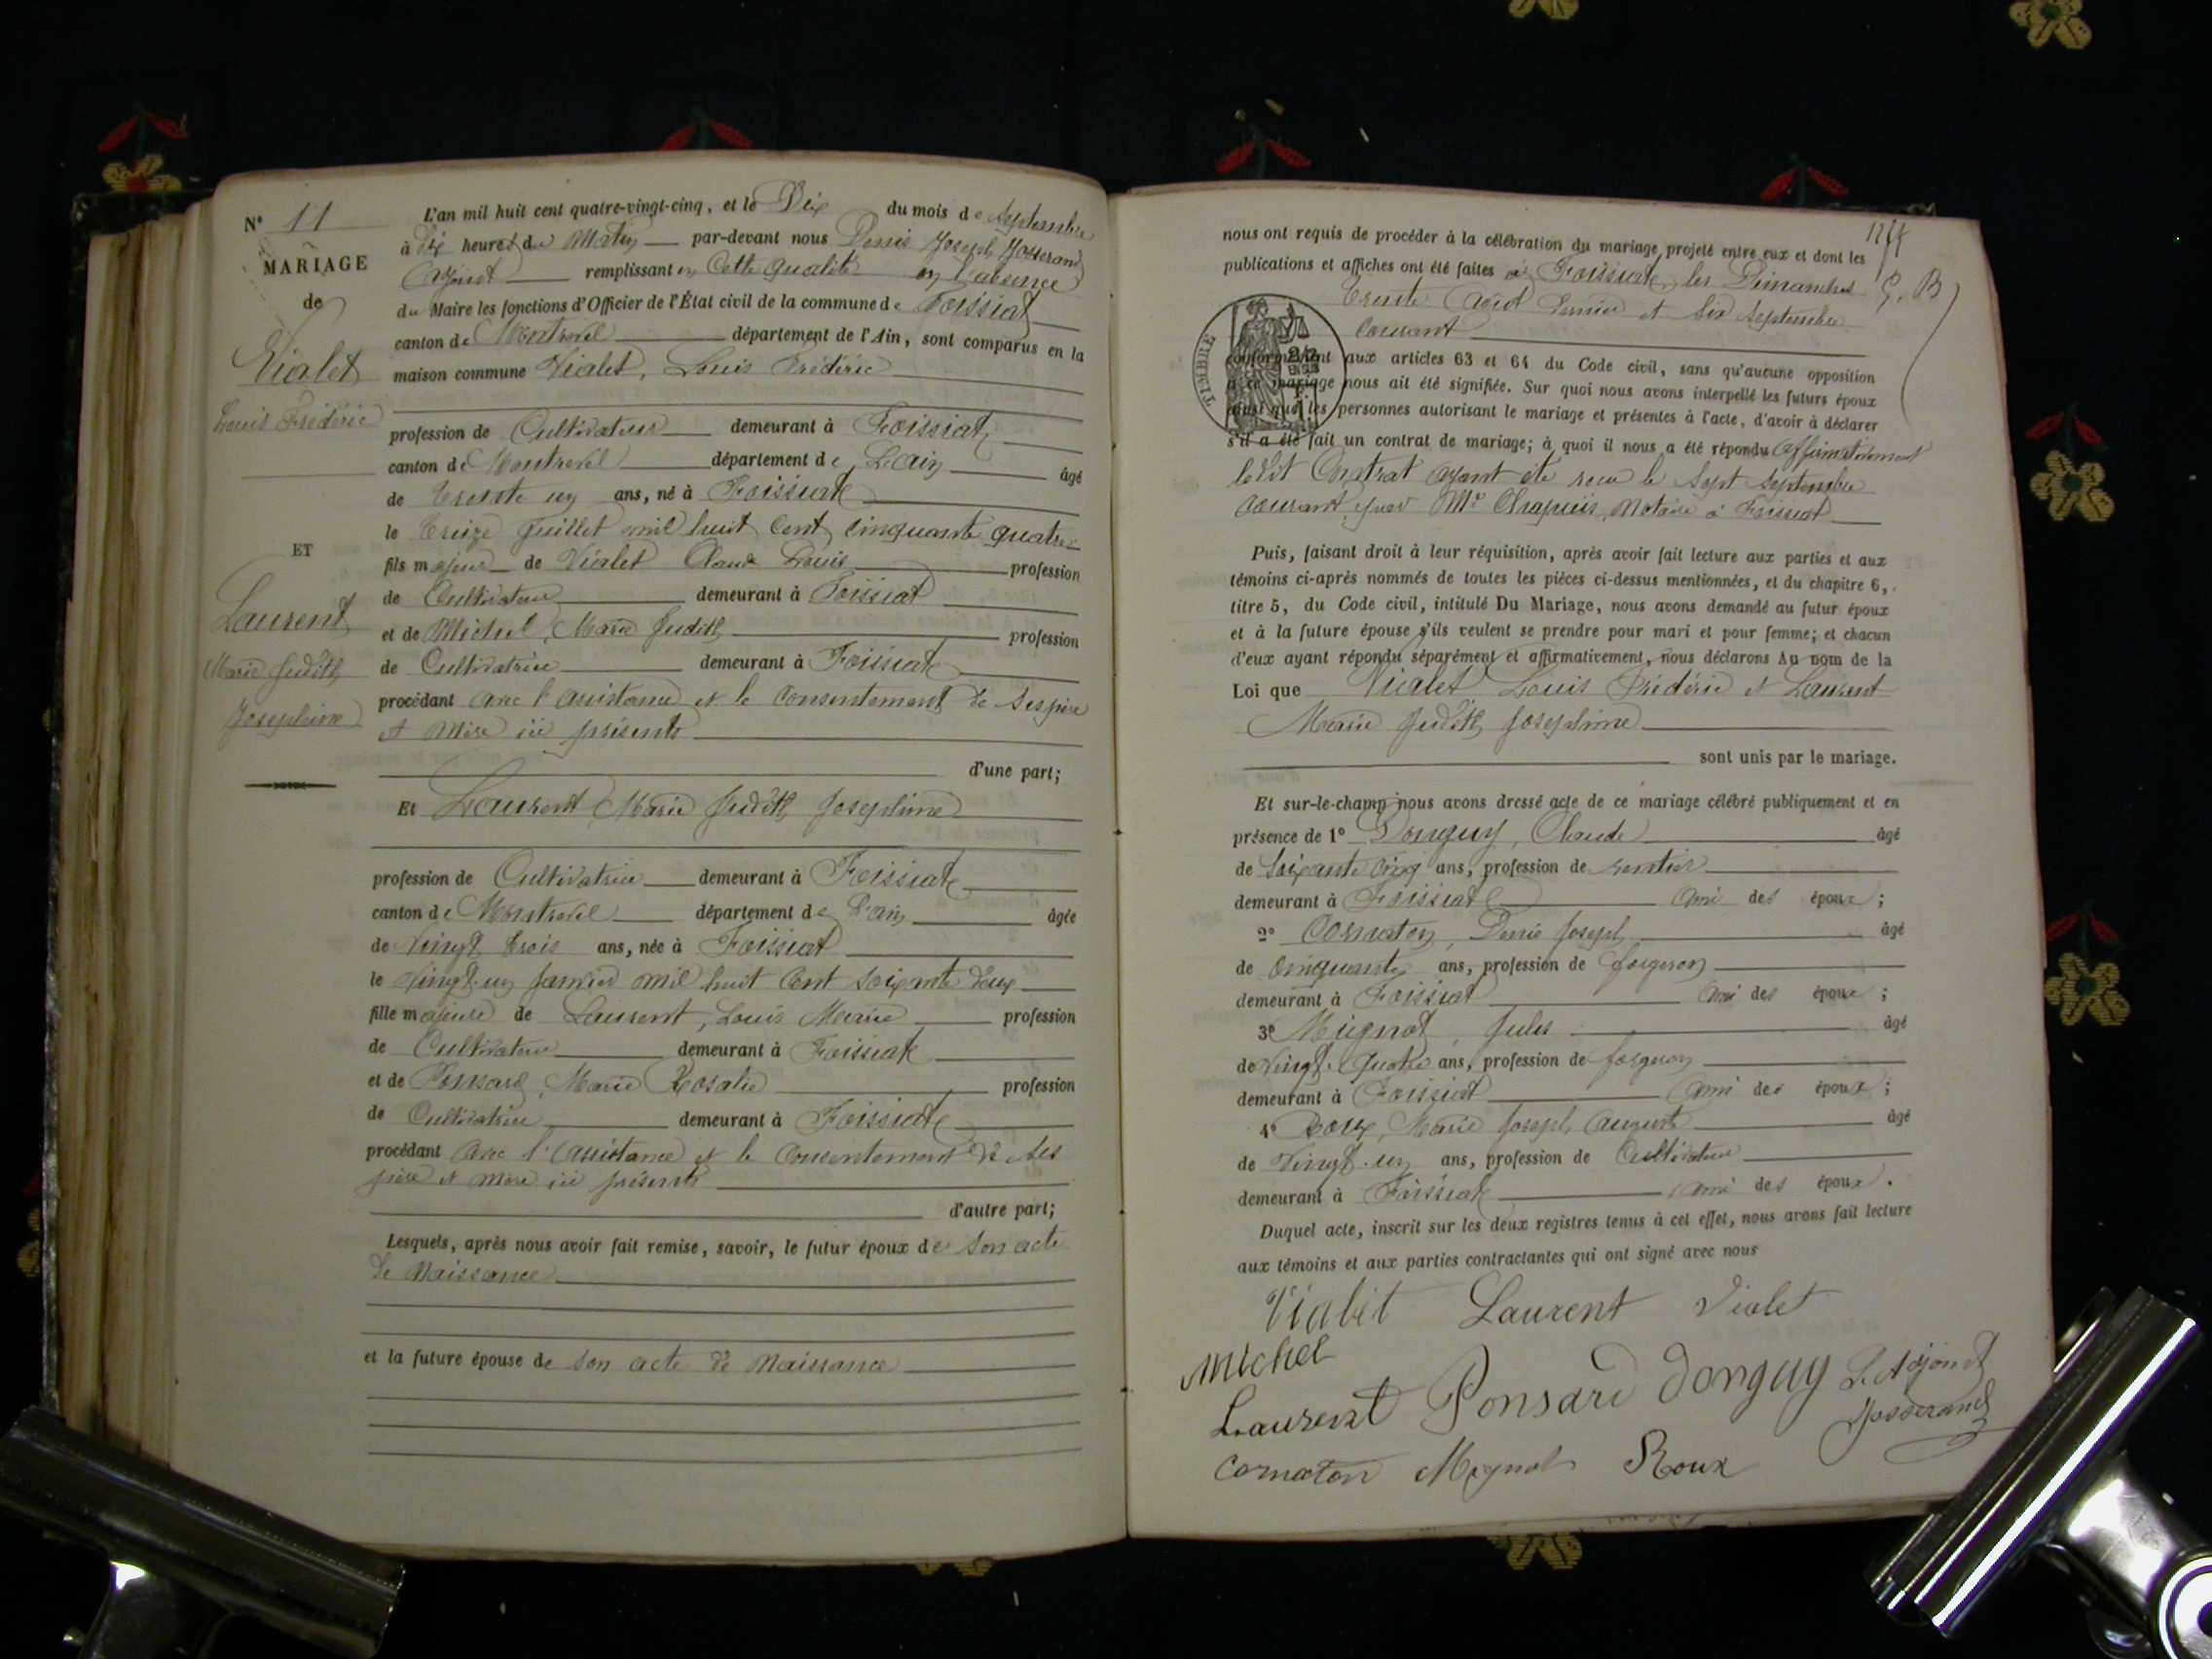 N° 11
MARIAGE
de
Vialet
Louis Frédéric
ET
Laurent
Marie Judith
Josephine
L'an mil huit cent quatre-vingt-cinq, et le Dix du mois de Septembre
à Dix heures du Matin par-devant nous Denis Joseph Josserand
Adjoint remplissant en Cette qualité en l'absence
du Maire les fonctions d'Officier de l'État civil de la commune de Foissiat
canton de Montrevel département de l'Ain, sont comparus en la
maison commune Vialet, Louis Frédéric
profession de Cultivateur demeurant à Foissiat
canton de Montrevel département de L'Ain âgé
de Trente un ans, né à Foissiat
le Treize Juillet mil huit Cent Cinquante quatre
fils majeur de Vialet Claude Louis profession
de Cultivateur demeurant à Foissiat
et de Michel, Marie Judith profession
de Cultivatrice demeurant à Foissiat
procédant avec l'assistance et le Consentement de Ses père
et Mère ici présents
d'une part;
Et Laurent Marie Judith Josephine
profession de Cultivatrice demeurant à Foissiat
canton de Montrevel département de L'ain âgée
de Vingt trois ans, née à Foissiat
le Vingt un Janvier mil huit Cent Soixante Deux
fille majeure de Laurent, Louis Marie profession
de Cultivateur demeurant à Foissiat
et de Ponsard, Marie Rosalie profession
de Cultivatrice demeurant à Foissiat
procédant avec l'assistance et le Consentement de Ses
père et mère ici présents
d'autre part;
Lesquels, après nous avoir fait remise, savoir, le futur époux de Son acte
de Naissance
et la future épouse de Son acte de Naissance
nous ont requis de procéder à la célébration du mariage projeté entre eux et dont les
publications et affiches ont été faites à Foissiat, les Dimanches
Trente Août Dernier et Six Septembre
Courant
TIMBRE
conformément aux articles 63 et 64 du Code civil, sans qu'aucune opposition
à ce mariage nous ait été signifiée. Sur quoi nous avons interpellé les futurs époux
ainsi que les personnes autorisant le mariage et présentes à l'acte, d'avoir à déclarer
s'il a été fait un contrat de mariage; à quoi il nous a été répondu Affirmativement
ledit Contrat ayant été reçu le Sept Septembre
Courant par Me Chapuis, Notaire à Foissiat
Puis, faisant droit à leur réquisition, après avoir fait lecture aux parties et aux
témoins ci-après nommés de toutes les pièces ci-dessus mentionnées, et du chapitre 6,
titre 5, du Code civil, intitulé Du Mariage, nous avons demandé au futur époux
et à la future épouse s'ils veulent se prendre pour mari et pour femme; et chacun
d'eux ayant répondu séparément et affirmativement, nous déclarons Au nom de la
Loi que Vialet Louis Frédéric et Laurent
Marie Judith Josephine
sont unis par le mariage.
Et sur-le-champ nous avons dressé acte de ce mariage célébré publiquement et en
présence de 1° Donguy, Claude âgé
de Soixante Cinq ans, profession de rentier
demeurant à Foissiat Ami des époux;
2° Cornaton, Denis Joseph âgé
de Cinquante ans, profession de forgeron
demeurant à Foissiat Ami des époux;
3° Mignot, Jules âgé
de Vingt-Quatre ans, profession de forgeron
demeurant à Foissiat Ami des époux;
4° Roux, Marie Joseph Auguste âgé
de Vingt-un ans, profession de Cultivateur
demeurant à Foissiat ami des époux.
Duquel acte, inscrit sur les deux registres tenus à cet effet, nous avons fait lecture
aux témoins et aux parties contractantes qui ont signé avec nous
Vialet Laurent Vialet
Michel
Laurent Ponsard Donguy L'Adjoint
Josserand
Cornaton Mignot Roux